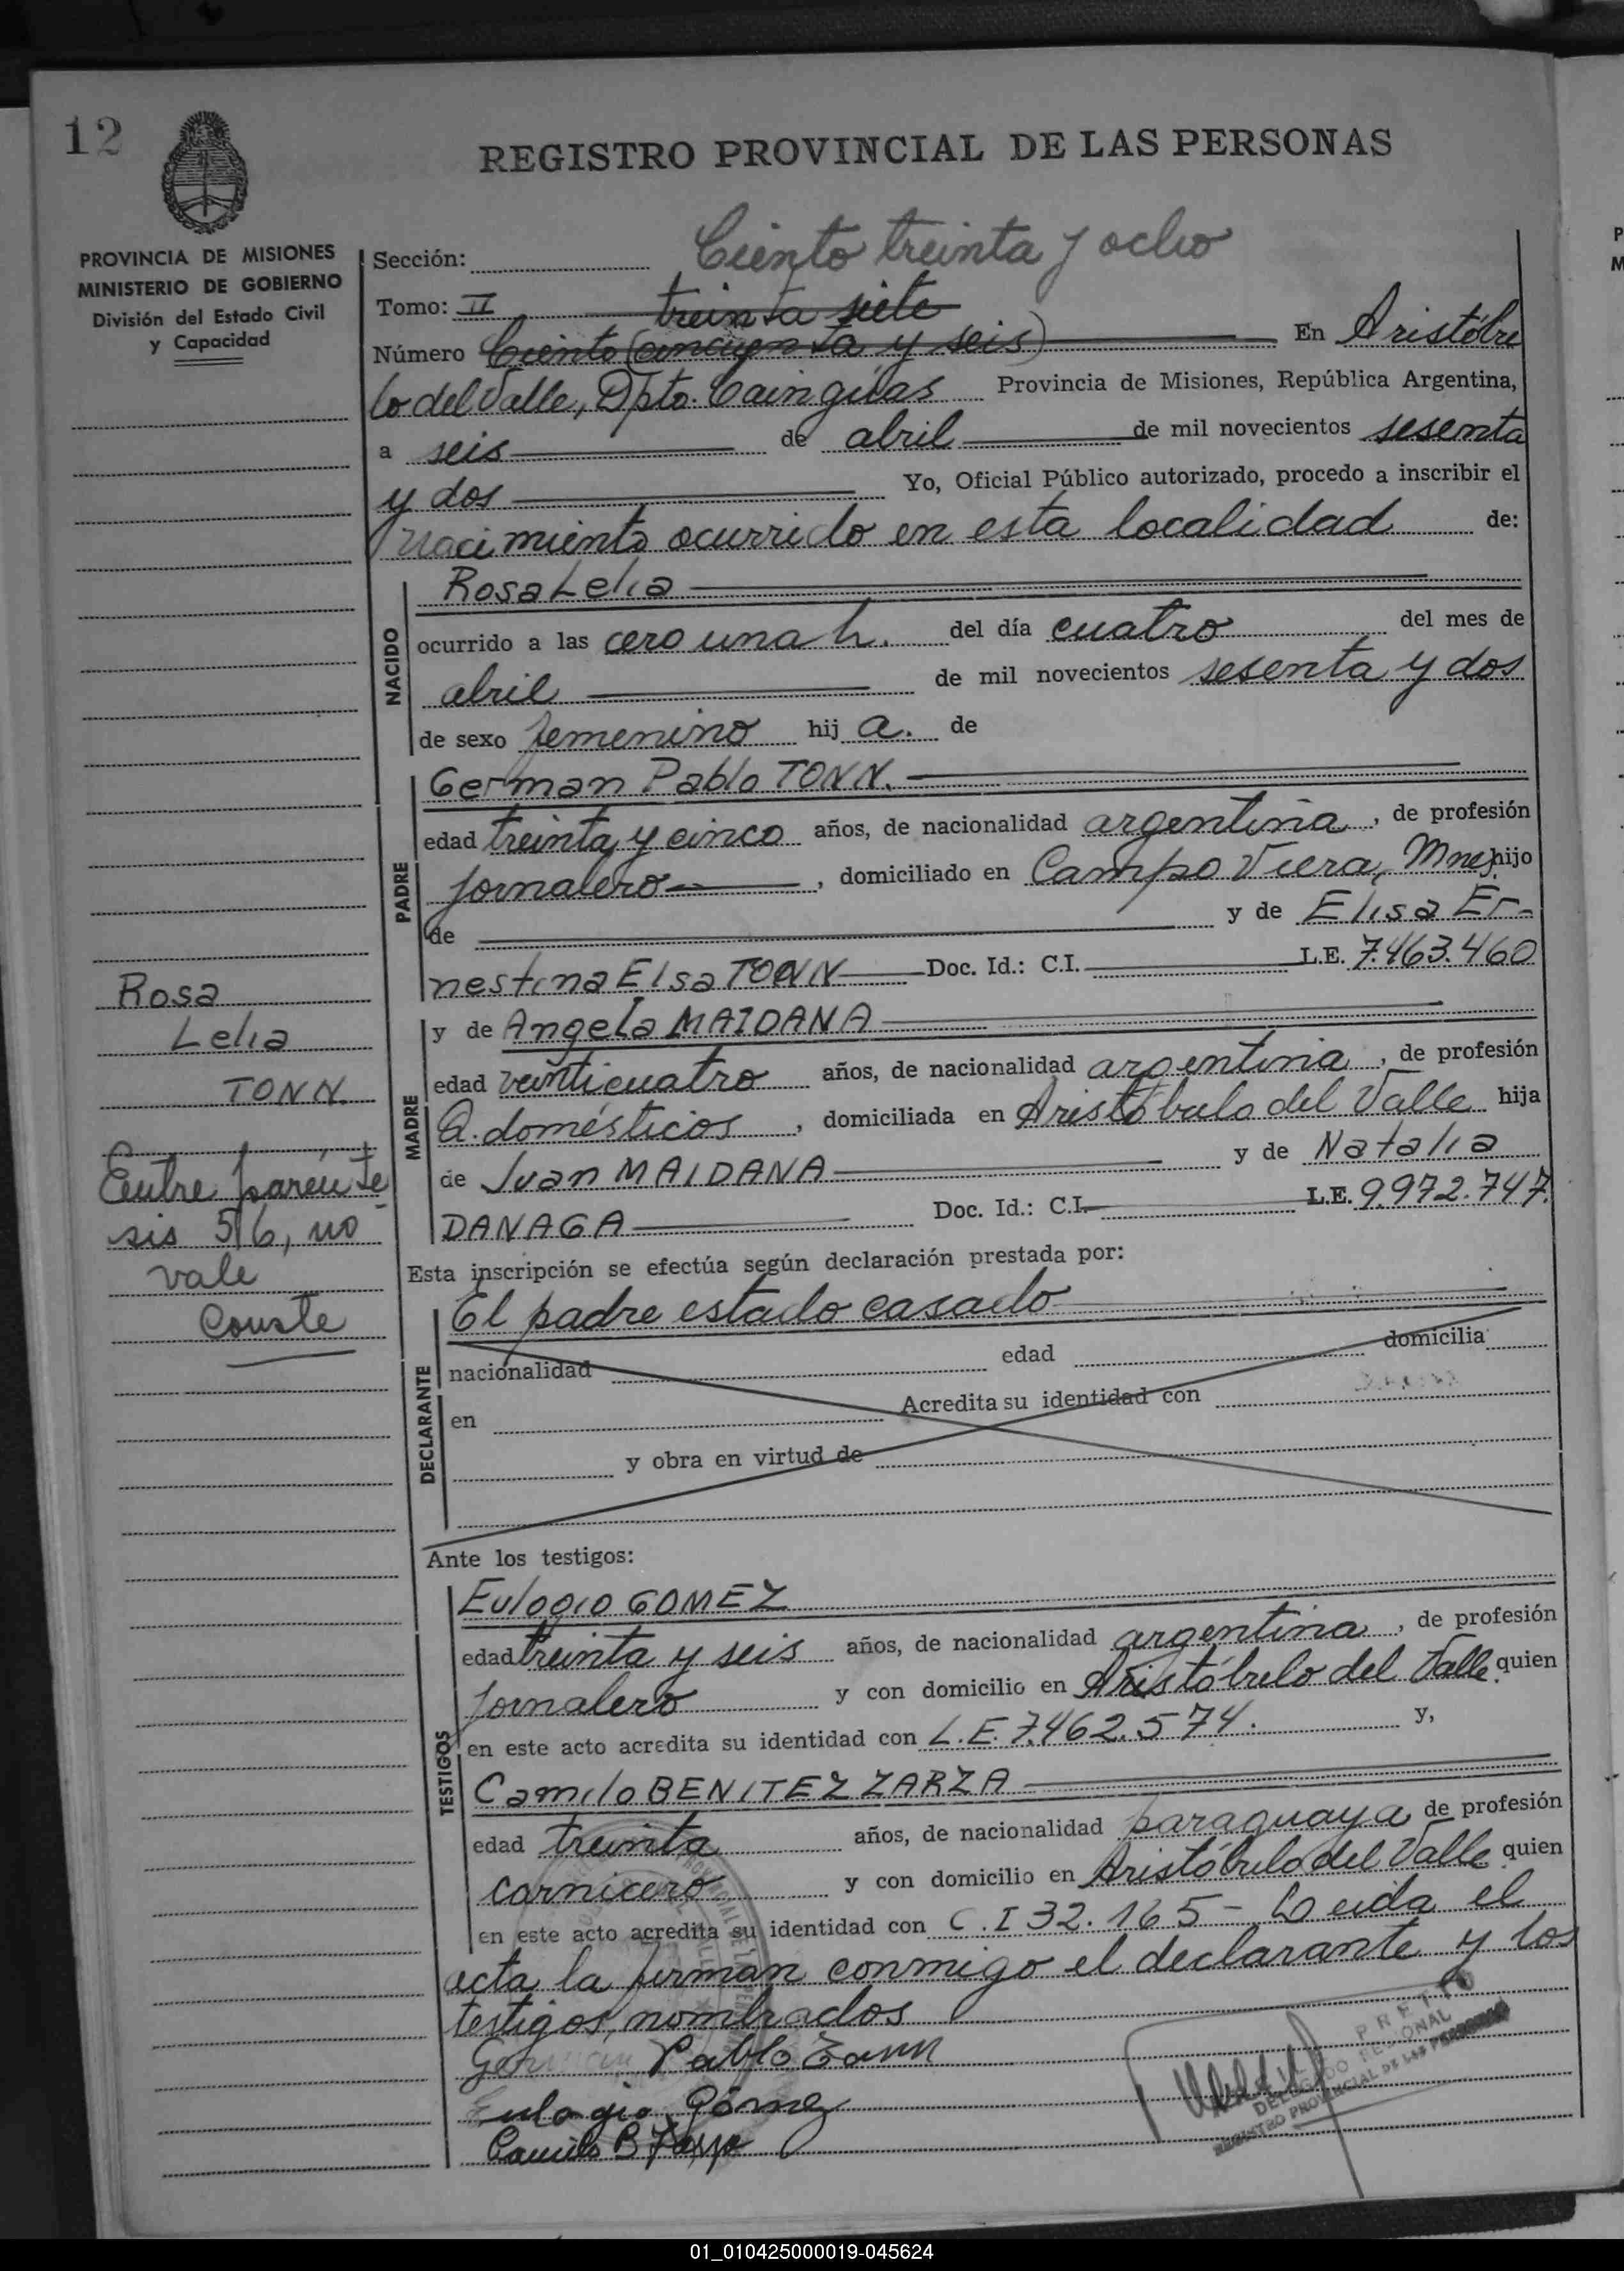 12
REGISTRO PROVINCIAL DE LAS PERSONAS
PROVINCIA DE MISIONES
MINISTERIO DE GOBIERNO
División del Estado Civil
y Capacidad
Ciento treinta y ocho
Sección:
Tomo: II treinta siete
Número Ciento (cincuenta y seis) En Aristóbu
lo del Valle, Dpto. Cainguas Provincia de Misiones, República Argentina,
a seis de abril de mil novecientos sesenta
y dos Yo, Oficial Público autorizado, procedo a inscribir el
nacimiento ocurrido en esta localidad de:
NACIDO
Rosa Lelia
ocurrido a las cero una h. del día cuatro del mes de
abril de mil novecientos sesenta y dos
de sexo femenino hij a. de
PADRE
German Pablo TONN.
edad treinta y cinco años, de nacionalidad argentina, de profesión
jornalero, domiciliado en Campo Viera, Mnes, hijo
de y de Elisa Er-
nestina Elsa TONN Doc. Id.: C.I. L.E. 7.463.460
MADRE
y de Angela MAIDANA
edad veinticuatro años, de nacionalidad argentina, de profesión
Q. domésticos, domiciliada en Aristóbulo del Valle hija
de Juan MAIDANA y de Natalia
DANAGA Doc. Id.: C.I. L.E. 9.972.747
Rosa
Lelia
TONN.
Entre parénte
sis 5|6, no
vale
Conste
Esta inscripción se efectúa según declaración prestada por:
DECLARANTE
El padre estado casado
nacionalidad edad domicilia
en Acredita su identidad con
y obra en virtud de
Ante los testigos:
TESTIGOS
Eulogio GOMEZ
edad treinta y seis años, de nacionalidad argentina, de profesión
jornalero y con domicilio en Aristóbulo del Valle. quien
en este acto acredita su identidad con L.E. 7.462.574. y,
Camilo BENITEZ ZARZA
edad treinta años, de nacionalidad paraguaya de profesión
carnicero y con domicilio en Aristóbulo del Valle quien
en este acto acredita su identidad con C.I 32.165- Leida el
acta la firman conmigo el declarante y los
testigos nombrados
German Pablo Tonn
Eulogio Gómez
Camilo B Zarza
DELEGADO PERSONAL
REGISTRO PROVINCIAL DE LAS PERSONAS
01_010425000019-045624